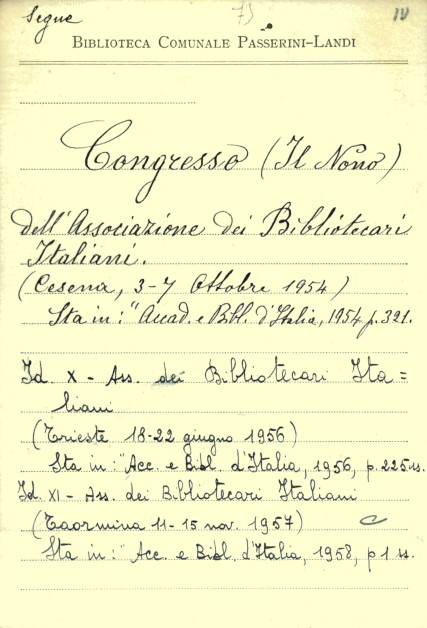 Segue 73 IV
BIBLIOTECA COMUNALE PASSERINI-LANDI
Congresso (Il Nono)
dell'Associazione dei Bibliotecari
Italiani.
(Cesena, 3-7 Ottobre 1954)
Sta in: "Accad. e Bibl. d'Italia, 1954 p. 321.
Id. X - Ass. dei Bibliotecari Ita=
liani
(Trieste 18-22 giugno 1956)
Sta in: "Acc. e Bibl. d'Italia, 1956, p. 225 ss.
Id. XI - Ass. dei Bibliotecari Italiani
(Taormina 11-15 nov. 1957)
Sta in: "Acc. e Bibl. d'Italia, 1958, p 1 ss.